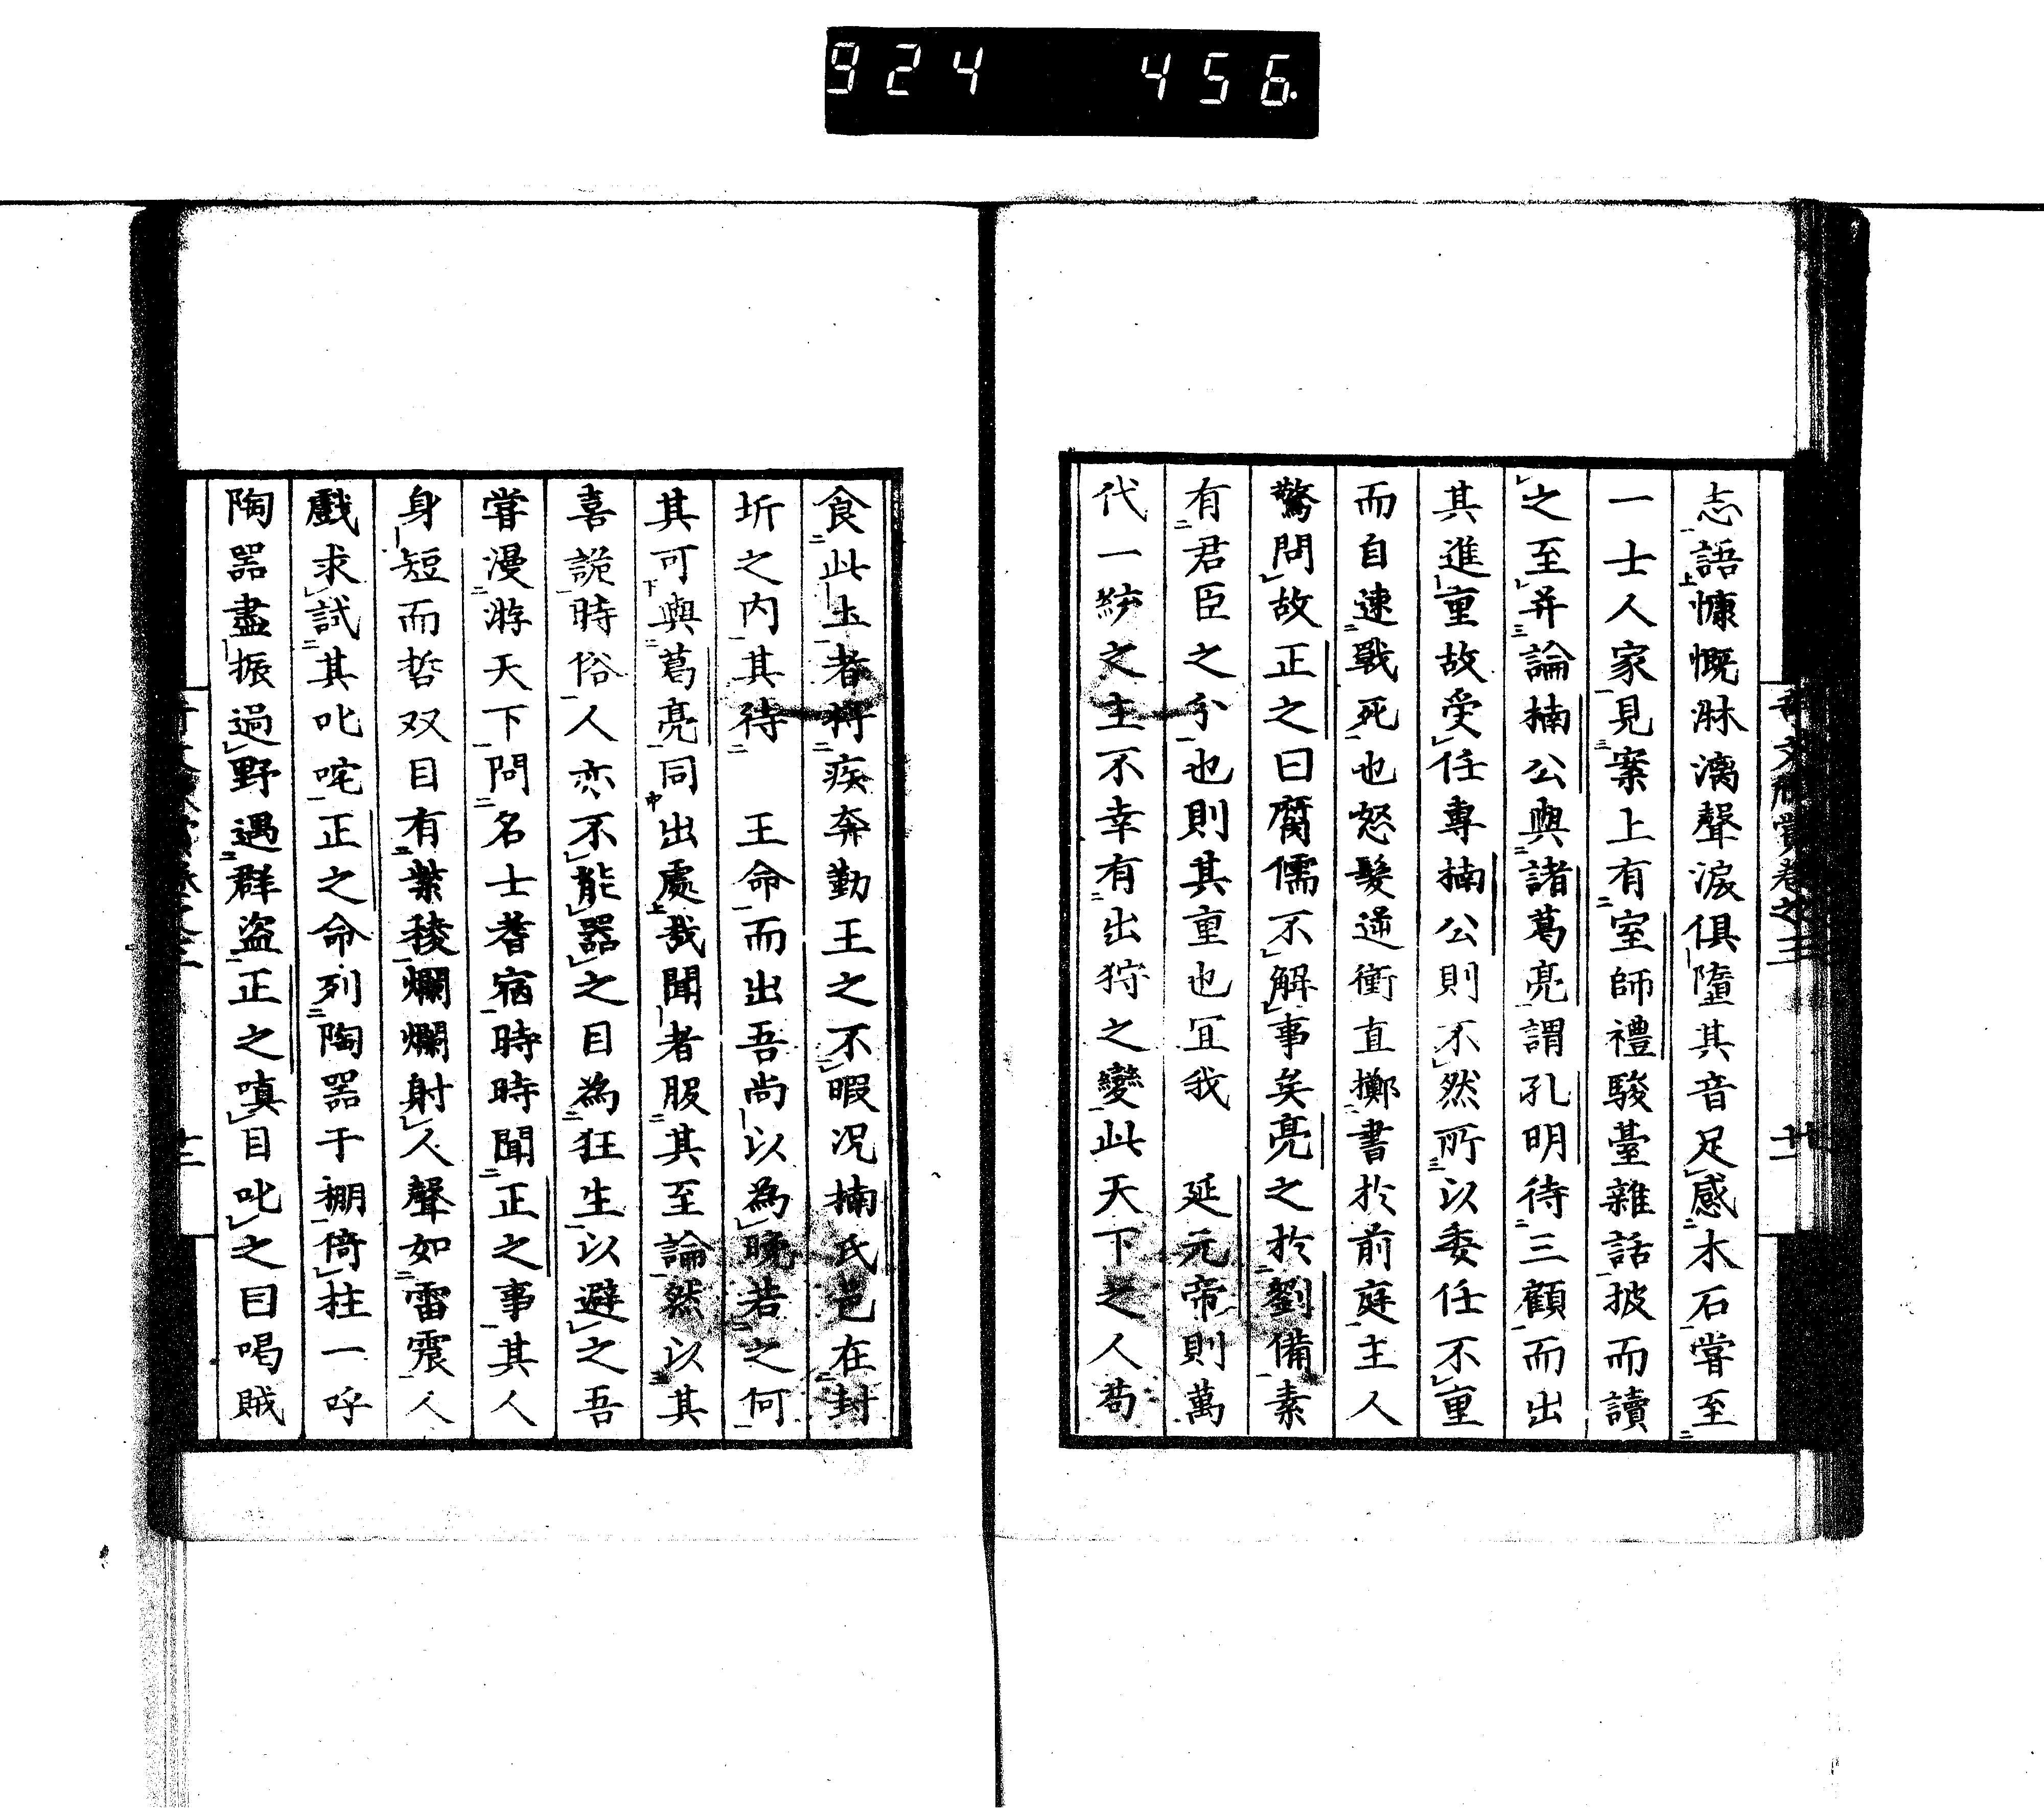 924 456.
志語慷慨淋漓聲淚俱墮其音足感木石嘗至
一士人家見案上有室師禮駿臺雜話披而讀
之至并論楠公與諸葛亮謂孔明待三顧而出
其進重故受任專楠公則不然所以委任不重
而自速戰死也怒髮逆衝直擲書於前庭主人
驚問故正之曰腐儒不解事矣亮之於劉備素
有君臣之分也則其重也冝我 延元帝則萬
代一統之主不幸有出狩之變此天下之人苟
食此土者将疾奔勤王之不暇况楠氏邑在封
圻之内其待 王命而出吾尚以為晚若之何
其可與葛亮同出處哉聞者服其至論然以其
喜詭時俗人亦不能器之目為狂生以避之吾
嘗漫游天下問名士耆宿時時聞正之事其人
身短而哲双目有紫稜爛爛射人聲如雷震人
戲求試其叱咤正之命列陶器于棚倚柱一呼
陶器盡振過野遇群盗正之嗔目叱之曰喝賊